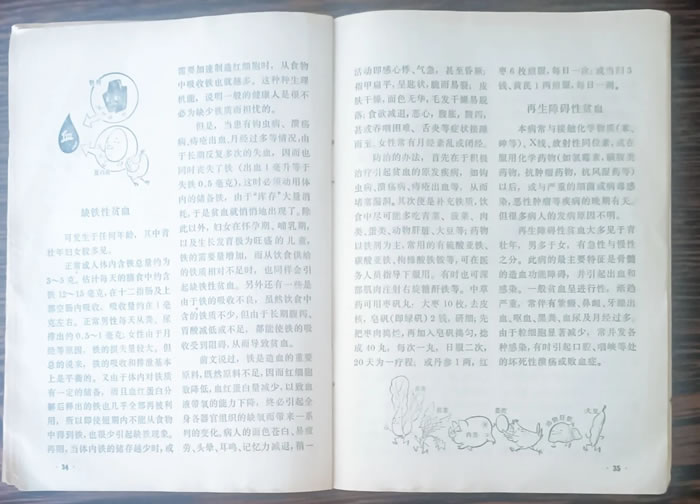 血
缺铁性贫血
可发生于任何年龄，其中青
壮年妇女较多见。
正常成人体内含铁总量约为
3～5克，估计每天的膳食中约含
铁12～15毫克，在十二指肠及上
部空肠内吸收，吸收量约在1毫
克左右。正常男性每天从粪、尿
排出约0.5～1毫克；女性由于月
经等原因，铁的损失量较大。但
总的说来，铁的吸收和排泄基本
上是平衡的。又由于体内对铁质
有一定的储备，而且血红蛋白分
解后释出的铁也几乎全部再被利
用，所以即使短期内不能从食物
中得到铁，也很少引起缺铁现象。
再则，当体内铁的储存越少时，或
需要加速制造红细胞时，从食物
中吸收铁也就越多。这种种生理
机能，说明一般的健康人是很不
必为缺少铁质而担忧的。
但是，当患有钩虫病、溃疡
病、痔疮出血、月经过多等情况，由
于长期反复多次的失血，因而也
同时丧失了铁（出血1毫升等于
失铁0.5毫克），这时必须动用体
内的储备铁，由于“库存”大量消
耗，于是贫血就悄悄地出现了。除
此以外，妇女在怀孕期、哺乳期，
以及生长发育极为旺盛的儿童，
铁的需要量增加，而从饮食供给
的铁质相对不足时，也同样会引
起缺铁性贫血。另外还有一些是
由于铁的吸收不良，虽然饮食中
含的铁质不少，但由于长期腹泻、
胃酸减低或不足，都能使铁的吸
收受到阻碍，从而导致贫血。
前文说过，铁是造血的重要
原料，既然原料不足，因而红细胞
数降低，血红蛋白量减少，以致血
液带氧的能力下降，终必引起全
身各器官组织的缺氧而带来一系
列的变化。病人的面色苍白、易疲
劳、头晕、耳鸣、记忆力减退，稍一
活动即感心悸、气急，甚至昏厥；
指甲扁平，呈匙状，脆而易裂，皮
肤干燥，面色无华，毛发干燥易脱
落；食欲减退，恶心，腹胀，腹泻，
甚或吞咽困难、舌炎等症状接踵
而至。女性常有月经紊乱或闭经。
防治的办法，首先在于积极
治疗引起贫血的原发疾病，如钩
虫病、溃疡病、痔疮出血等，从而
堵塞漏洞。其次便是补充铁质，饮
食中尽可能多吃青菜、菠菜、肉
类、蛋类、动物肝脏、大豆等；药物
以铁剂为主，常用的有硫酸亚铁、
碳酸亚铁、枸橼酸铁铵等，可在医
务人员指导下服用。有时也可深
部肌肉注射右旋糖酐铁等。中草
药可用枣矾丸：大枣10枚，去皮
核，皂矾（即绿矾）2钱，研细；先
把枣肉捣烂，再加入皂矾捣匀，捻
成40丸，每次一丸，日服二次，
20天为一疗程；或丹参1两，红
枣6枚煎服，每日一次；或当归5
钱、黄芪1两煎服，每日一剂。
再生障碍性贫血
本病常与接触化学物质（苯、
砷等）、X线、放射性同位素，或在
服用化学药物（如氯霉素、磺胺类
药物、抗肿瘤药物、抗风湿药等）
以后，或与严重的细菌或病毒感
染，恶性肿瘤等疾病的晚期有关，
但很多病人的发病原因不明。
再生障碍性贫血大多见于青
壮年，男多于女，有急性与慢性
之分。此病的最主要特征是骨髓
的造血功能障碍，并引起出血和
感染。一般贫血呈进行性，颇趋
严重，常伴有紫癜、鼻衄、牙龈出
血、呕血、黑粪、血尿及月经过多。
由于粒细胞显著减少，常并发各
种感染，有时引起口腔、咽峡等处
的坏死性溃疡或败血症。
35